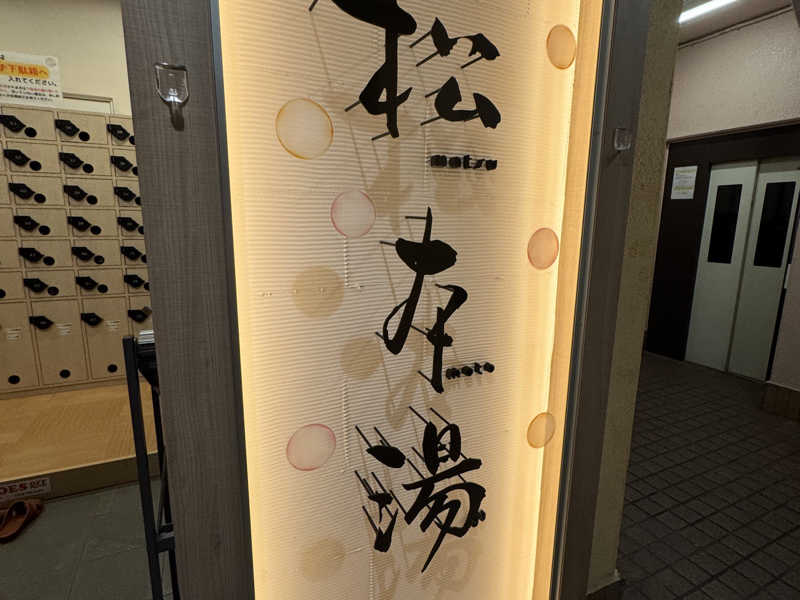 松
matsu
本
moto
湯
下駄箱へ
入れてください。